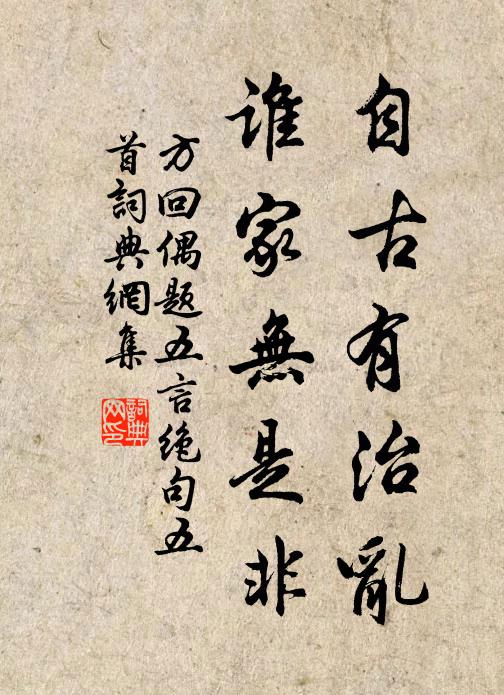 自古有治亂
誰家無是非
方回偶题五言绝句五
首詞典網集
詞典
网印